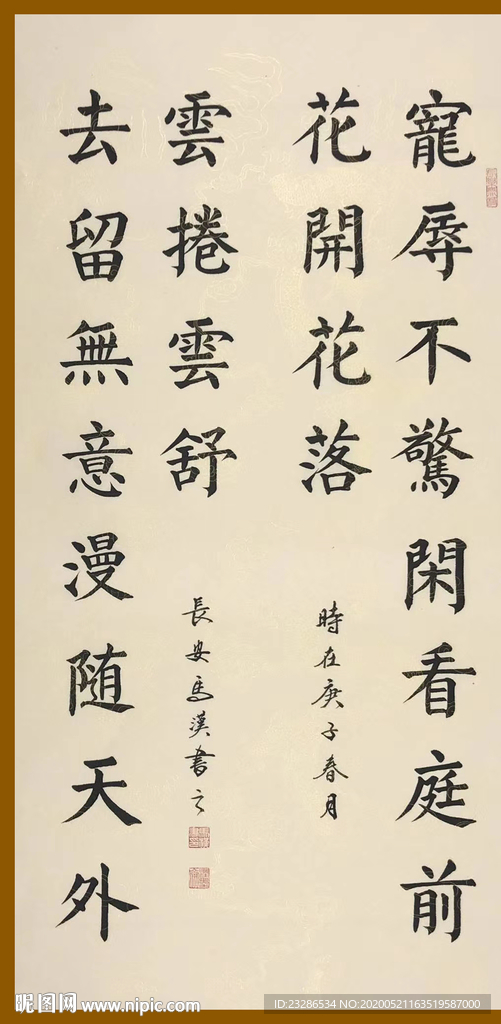 寵辱不驚閑看庭前
花開花落
時在庚子春月
雲捲雲舒
長安馬漢書之
去留無意漫随天外
昵图网 www.nipic.com
ID:23286534 NO:20200521163519587000